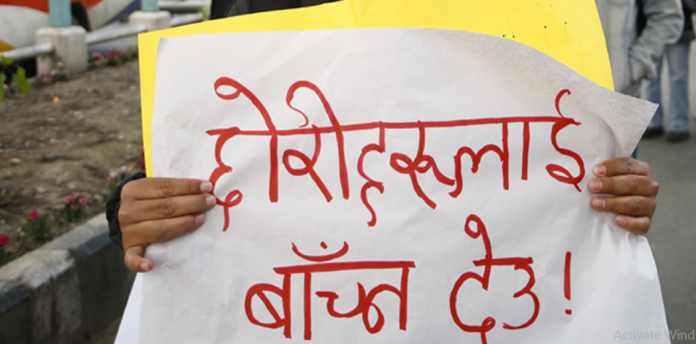 छोरीहरूलाई
बाँच्न देउ!
Activate Wind